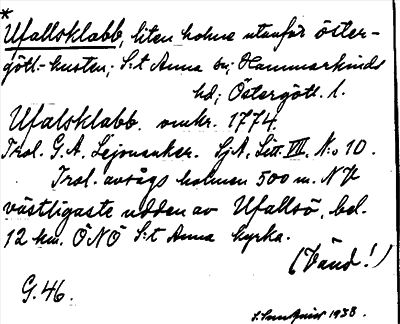 *
Ufallsklabb, liten holme utanför öster-
götl.-kusten; S:t Anna sn; Hammarkinds
hd; Östergötl. l.
Ufalsklabb. omkr. 1774.
Trol. G. A. Lejonanker. Sj A, Litt. VII, No 10.
Trol. avsågs holmen 500 m. NV
västligaste udden av Ufallsö, bel.
12 km. ÖNÖ S:t Anna kyrka.
(Vänd!)
G. 46.
1938.